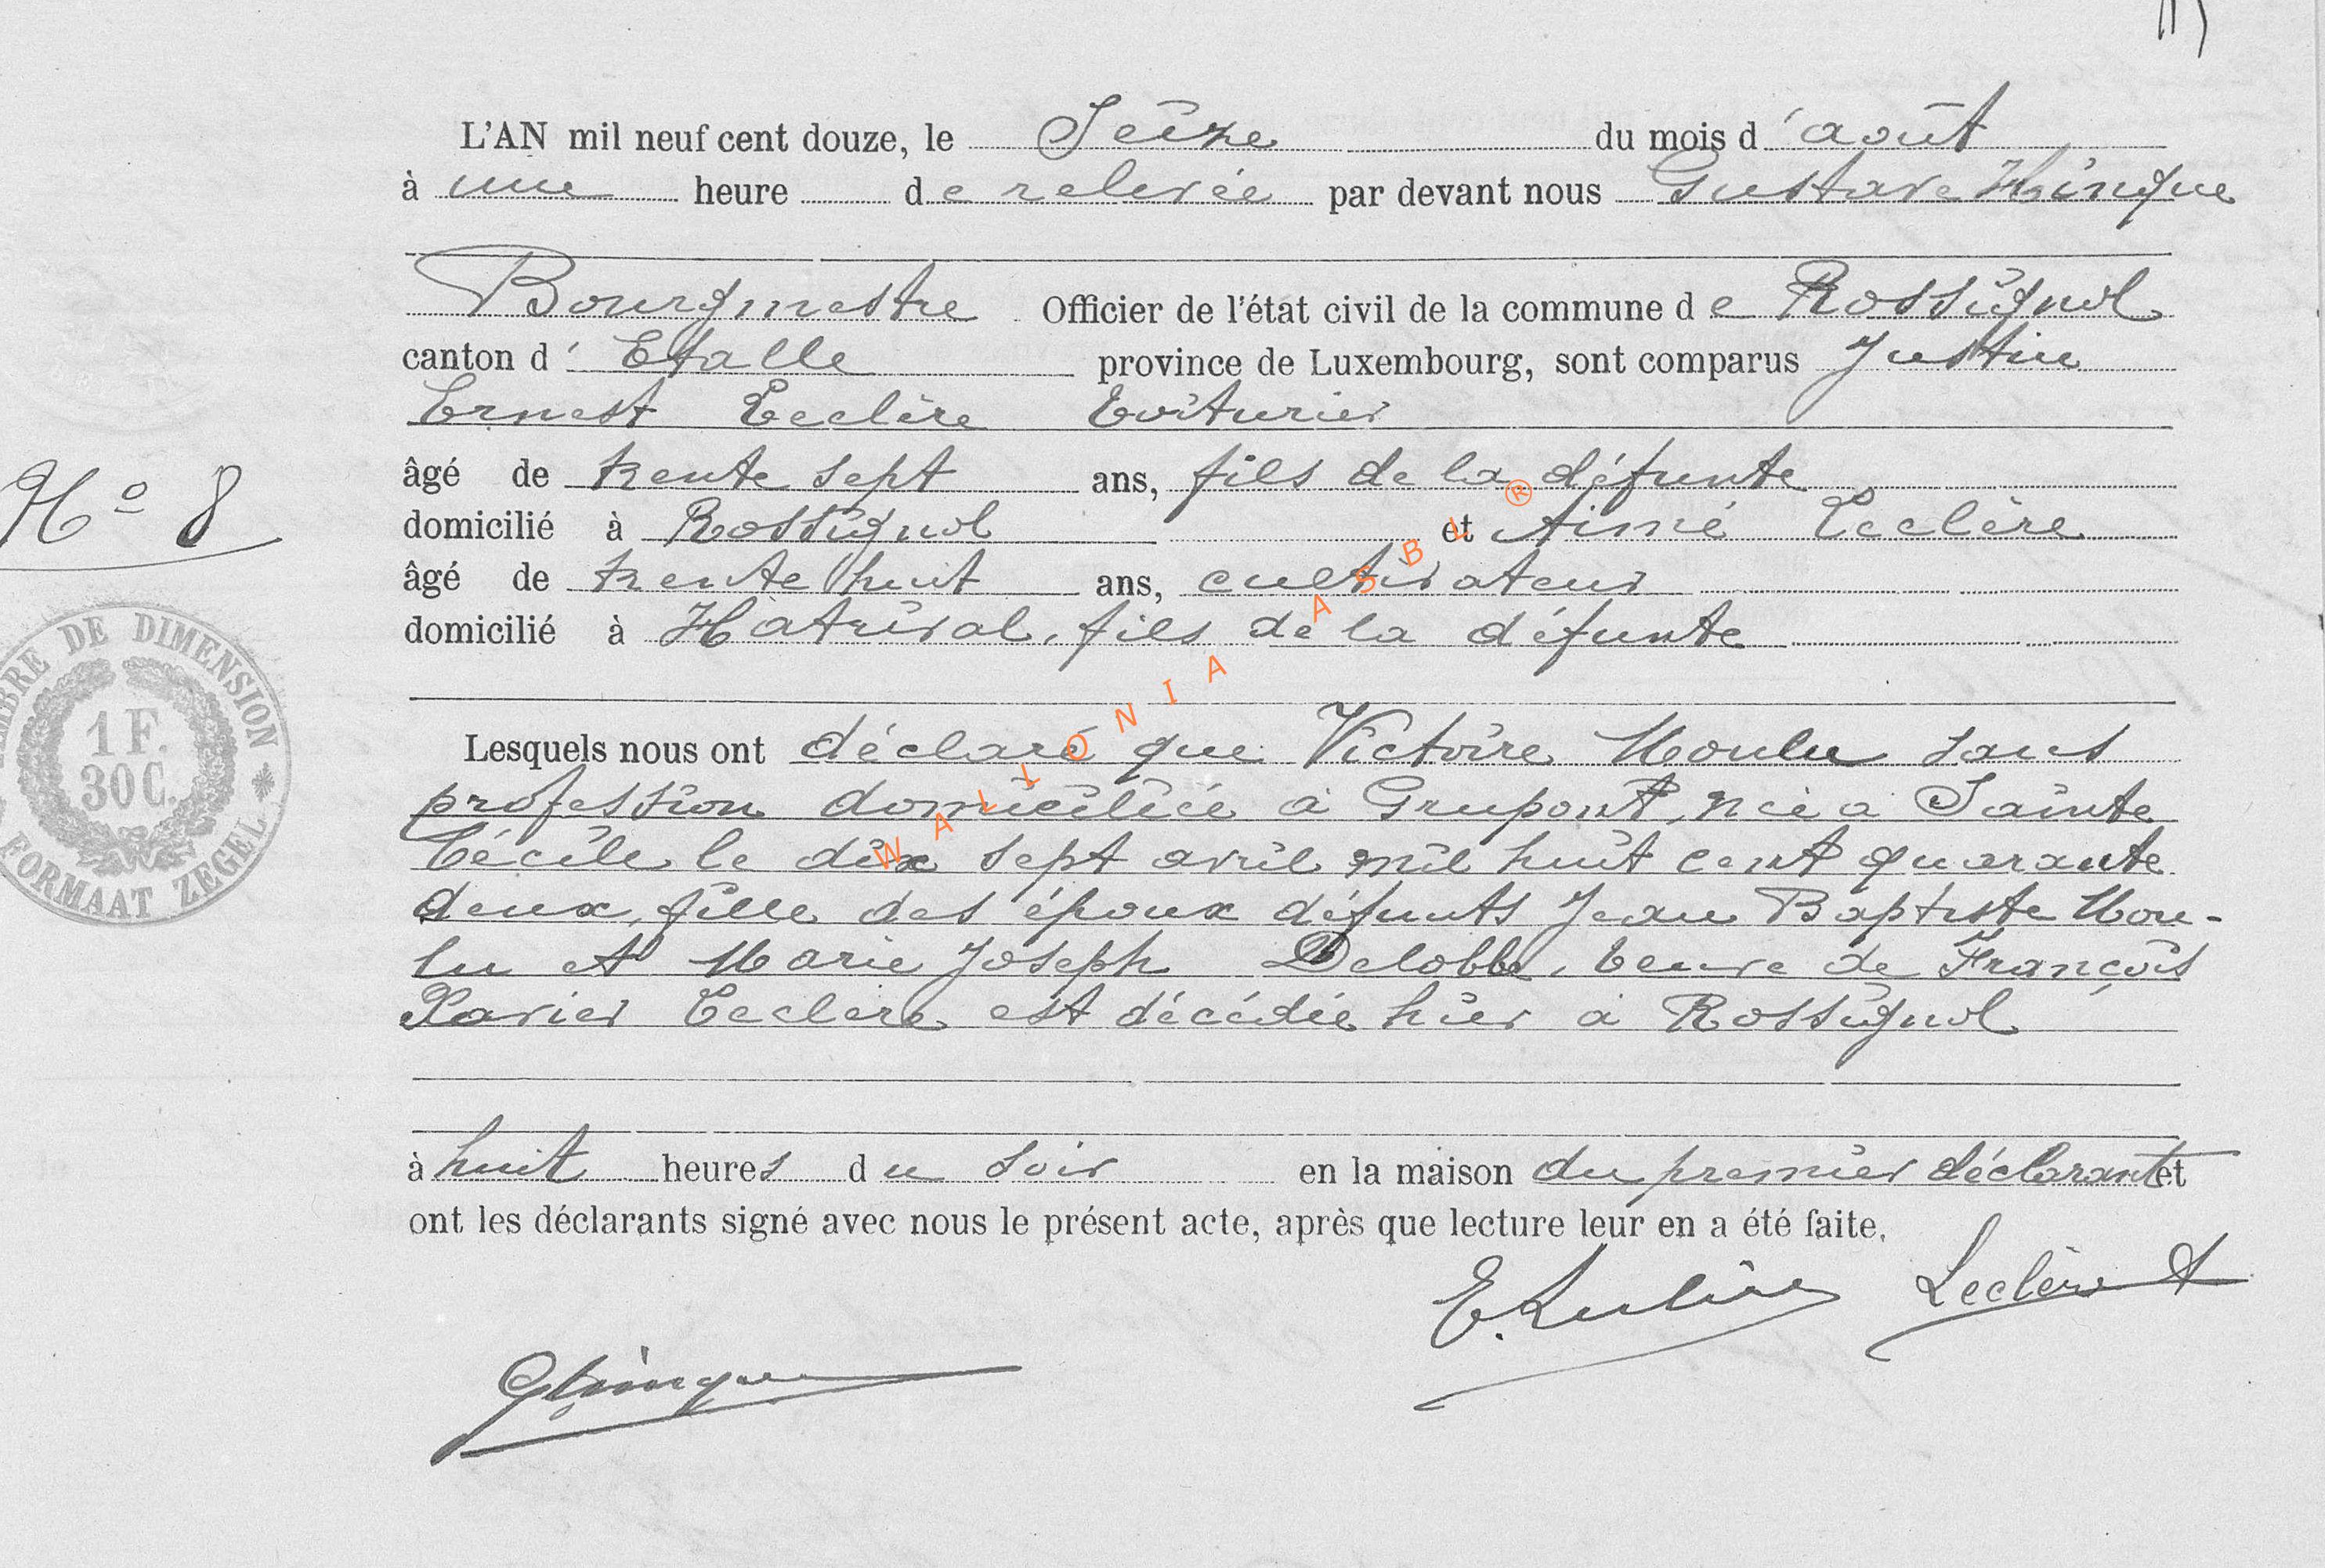 L'AN mil neuf cent douze, le Seize du mois d'août
à une heure de relevée par devant nous Gustave Hinque
Bourgmestre Officier de l'état civil de la commune de Rossignol
canton d'Etalle province de Luxembourg, sont comparus Justin
Ernest Leclère Voiturier
âgé de trente sept ans, fils de la défunte
domicilié à Rossignol et Aimé Leclère
âgé de trente huit ans, cultivateur
domicilié à Hatrival, fils de la défunte
N° 8
TIMBRE DE DIMENSION
1 F.
30 C.
FORMAAT ZEGEL
Lesquels nous ont déclaré que Victoire Moulu sans
profession domiciliée à Grupont, née à Sainte
Cécile le dix sept avril mil huit cent quarante
deux, fille des époux défunts Jean Baptiste Mou-
lu et Marie Joseph Delobbe, veuve de François
Xavier Leclère est décédée hier à Rossignol
à huit heures du soir en la maison du premier déclarant et
ont les déclarants signé avec nous le présent acte, après que lecture leur en a été faite.
E. Leclère Leclère A
GHinque
WALLONIA ASBL ®